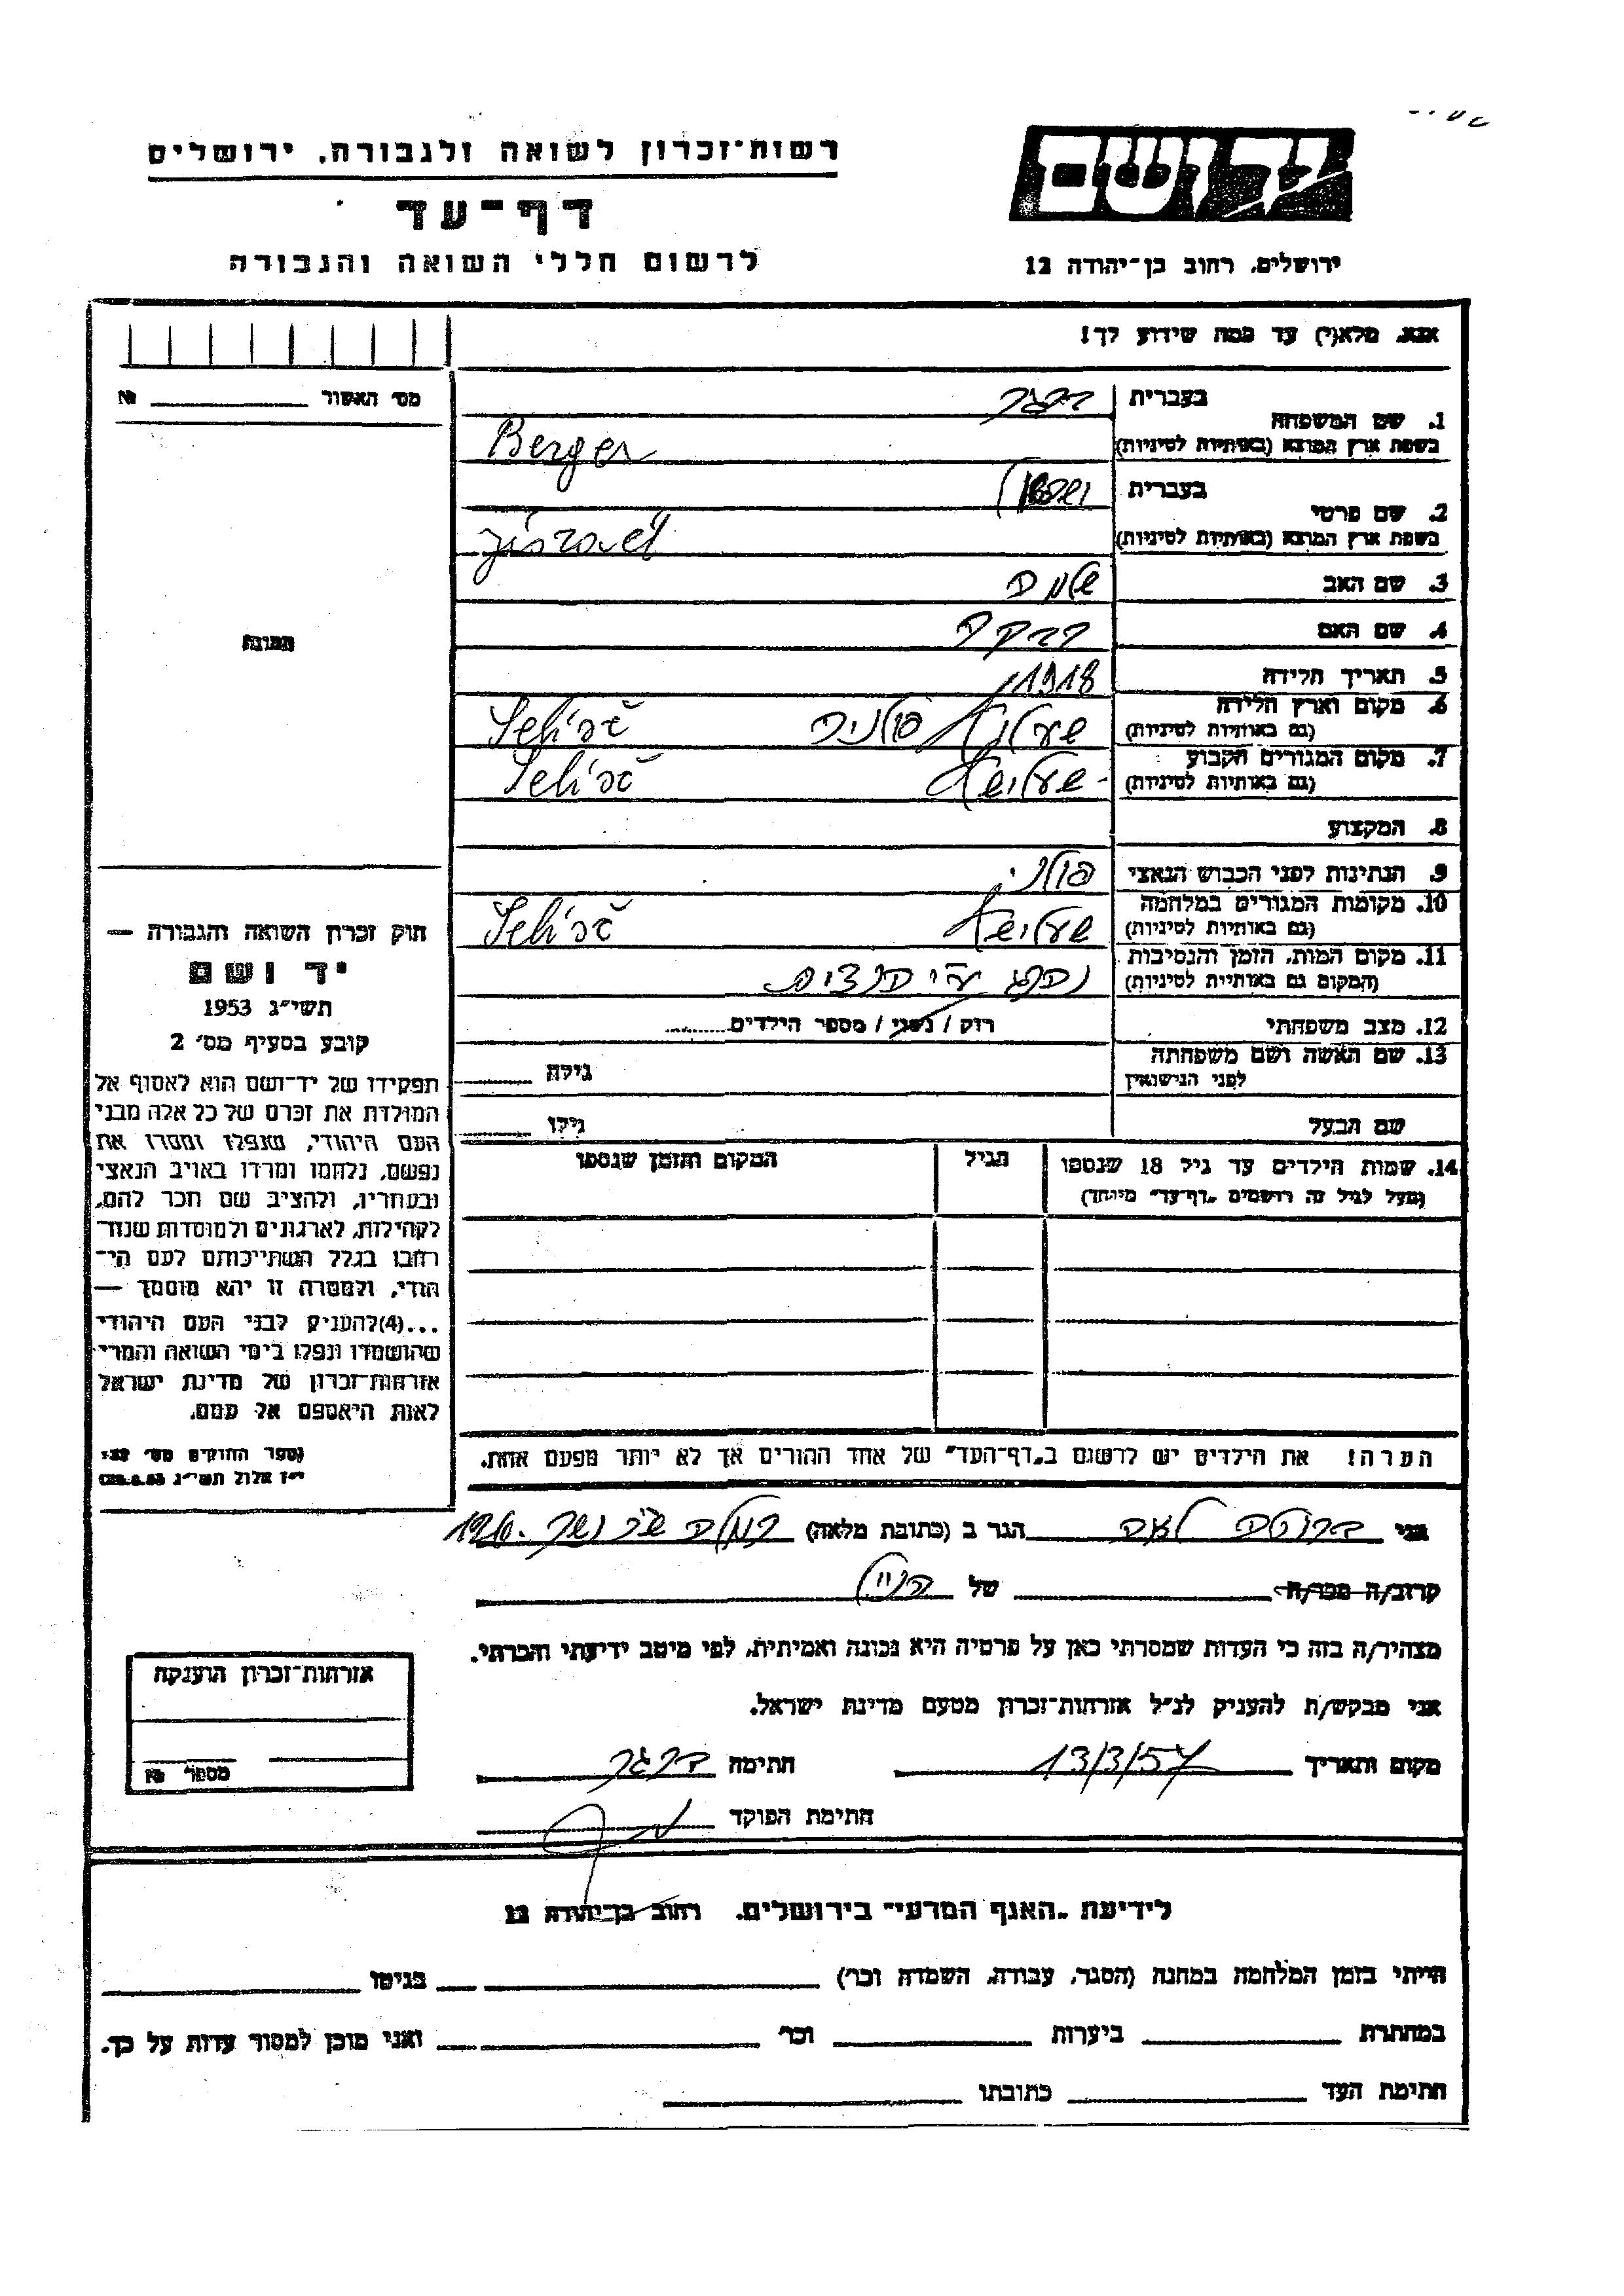 יד ושם
רשות־זכרון לשואה ולגבורה, ירושלים
דף־עד
לרשום חללי השואה והגבורה
ירושלים, רחוב בן־יהודה 12
אנא, מלא(י) עד כמה שידוע לך!
מס׳ האשור № 
1. שם המשפחה
בעברית ברגר
בשפת ארץ המוצא (באותיות לטיניות) Berger
2. שם פרטי
בעברית
בשפת ארץ המוצא (באותיות לטיניות)
3. שם האב שלמה
4. שם האם רבקה
5. תאריך הלידה 1918
6. מקום וארץ הלידה
(גם באותיות לטיניות) פולניה
7. מקום המגורים הקבוע
(גם באותיות לטיניות)
8. המקצוע
9. הנתינות לפני הכבוש הנאצי פולני
10. מקומות המגורים במלחמה
(גם באותיות לטיניות)
11. מקום המות, הזמן והנסיבות
(המקום גם באותיות לטיניות) נהרג ע״י הנצים
12. מצב משפחתי רווק / נשוי / מספר הילדים
13. שם האשה ושם משפחתה
לפני הנישואין גילה
שם הבעל גילו
14. שמות הילדים עד גיל 18 שנספו
(מעל לגיל זה רושמים „דף־עד״ מיוחד)
הגיל
המקום והזמן שנספו
הערה! את הילדים יש לרשום ב„דף־העד״ של אחד ההורים אך לא יותר מפעם אחת.
תמונה
חוק זכרון השואה והגבורה —
יד ושם
תשי״ג 1953
קובע בסעיף מס׳ 2
תפקידו של יד־ושם הוא לאסוף אל
המולדת את זכרם של כל אלה מבני
העם היהודי, שנפלו ומסרו את
נפשם, נלחמו ומרדו באויב הנאצי
ובעוזריו, ולהציב שם וזכר להם,
לקהילות, לארגונים ולמוסדות שנח־
רבו בגלל השתייכותם לעם הי־
הודי, ולמטרה זו יהא מוסמך —
...(4)להעניק לבני העם היהודי
שהושמדו ונפלו בימי השואה והמרי
אזרחות־זכרון של מדינת ישראל
לאות היאספם אל עמם.
(ספר החוקים מס׳ 132
י״ז אלול תשי״ג 28.8.53)
אני לאה הגר ב (כתובת מלאה) רמלה
קרוב/ה מכר/ה של
מצהיר/ה בזה כי העדות שמסרתי כאן על פרטיה היא נכונה ואמיתית, לפי מיטב ידיעתי והכרתי.
אני מבקש/ת להעניק לנ״ל אזרחות־זכרון מטעם מדינת ישראל.
מקום ותאריך 13/3/57 חתימה ברגר
חתימת הפוקד
אזרחות־זכרון הוענקה
מספר №
לידיעת „האגף המדעי״ בירושלים. רחוב בן־יהודה 12
הייתי בזמן המלחמה במחנה (הסגר, עבודה, השמדה וכו׳) בגיטו
במחתרת ביערות וכו׳ ואני מוכן למסור עדות על כך.
חתימת העד כתובתו